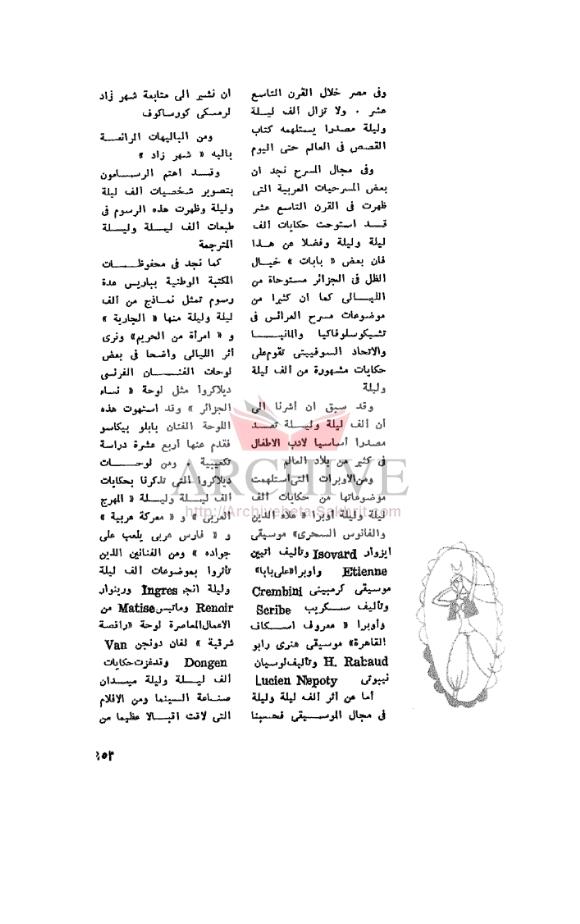 وفى مصر خلال القرن التاسع
عشر . ولا تزال ألف ليلة
وليلة مصدرا يستلهمه كتاب
القصص فى العالم حتى اليوم
وفى مجال المسرح نجد ان
بعض المسرحيات العربية التى
ظهرت فى القرن التاسع عشر
قد استوحت حكايات ألف
ليلة وليلة وفضلا عن هذا
فان بعض « بابات » خيال
الظل فى الجزائر مستوحاة من
الليالى كما ان كثيرا من
موضوعات مسرح العرائس فى
تشيكوسلوفاكيا والمانيا
والاتحاد السوفييتى تقوم على
حكايات مشهورة من ألف ليلة
وليلة
وقد سبق ان أشرنا الى
أن ألف ليلة وليلة تعد
مصدرا أساسيا لادب الاطفال
فى كثير من بلاد العالم
ومن الاوبرات التى استلهمت
موضوعاتها من حكايات ألف
ليلة وليلة أوبرا « علاء الدين
والفانوس السحرى» موسيقى
ايزوار Isovard وتأليف اتيين
Etienne وأوبرا «على بابا»
موسيقى كرمبينى Crembini
وتأليف سكريب Scribe
وأوبرا « معروف اسكاف
القاهرة» موسيقى هنرى رابو
H. Rabaud وتأليف لوسيان
نيبوتى Lucien Nepoty
أما عن أثر ألف ليلة وليلة
فى مجال الموسيقى فحسبنا
ان نشير الى متابعة شهر زاد
لرمسكى كورساكوف
ومن الباليهات الرائعة
باليه « شهر زاد »
وقد اهتم الرسامون
بتصوير شخصيات ألف ليلة
وليلة وظهرت هذه الرسوم فى
طبعات ألف ليلة وليلة
المترجمة
كما نجد فى محفوظات
المكتبة الوطنية بباريس عدة
رسوم تمثل نماذج من ألف
ليلة وليلة منها « الجارية »
و « امرأة من الحريم» ونرى
أثر الليالى واضحا فى بعض
لوحات الفنان الفرنسى
ديلاكروا مثل لوحة « نساء
الجزائر » وقد استهوت هذه
اللوحة الفنان بابلو بيكاسو
فقدم عنها أربع عشرة دراسة
تكعيبية . ومن لوحات
ديلاكروا التى تذكرنا بحكايات
ألف ليلة وليلة « المهرج
العربى » و « معركة عربية »
و « فارس عربى يلعب على
جواده » ومن الفنانين الذين
تأثروا بموضوعات ألف ليلة
وليلة انجر Ingres ورينوار
Renoir وماتيس Matise من
الاعمال المعاصرة لوحة «راقصة
شرقية » لفان دونجن Van
Dongen وقد غزت حكايات
ألف ليلة وليلة ميدان
صناعة السينما ومن الافلام
التى لاقت اقبالا عظيما من
ARCHIVE
http://Archivebeta.Sakhrit.com